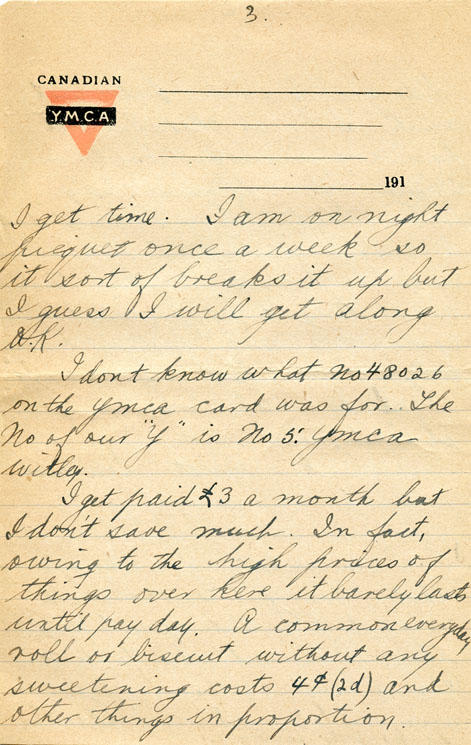 3.
CANADIAN
Y.M.C.A
191
I get time. I am on night
picquet once a week so
it sort of breaks it up but
I guess I will get along
O.K.
I dont know what No 48026
on the Ymca card was for. The
No of our "Y" is No 5. Ymca
Witley.
I get paid £3 a month but
I don't save much. In fact,
owing to the high prices of
things over here it barely lasts
until pay day. A common everyday
roll or biscuit without any
sweetening costs 4¢ (2d) and
other things in proportion.